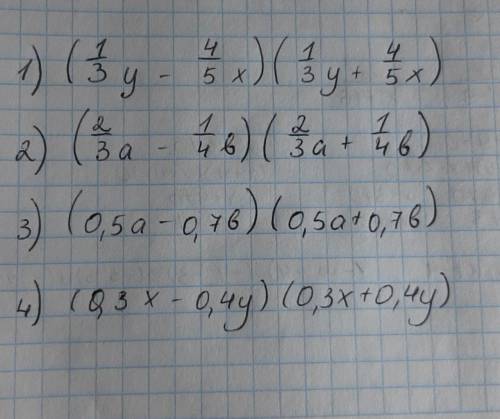 1) (1/3 y - 4/5 x) (1/3 y + 4/5 x)
2) (2/3 a - 1/4 в) (2/3 a + 1/4 в)
3) (0,5a - 0,7в) (0,5a + 0,7в)
4) (0,3x - 0,4y) (0,3x + 0,4y)